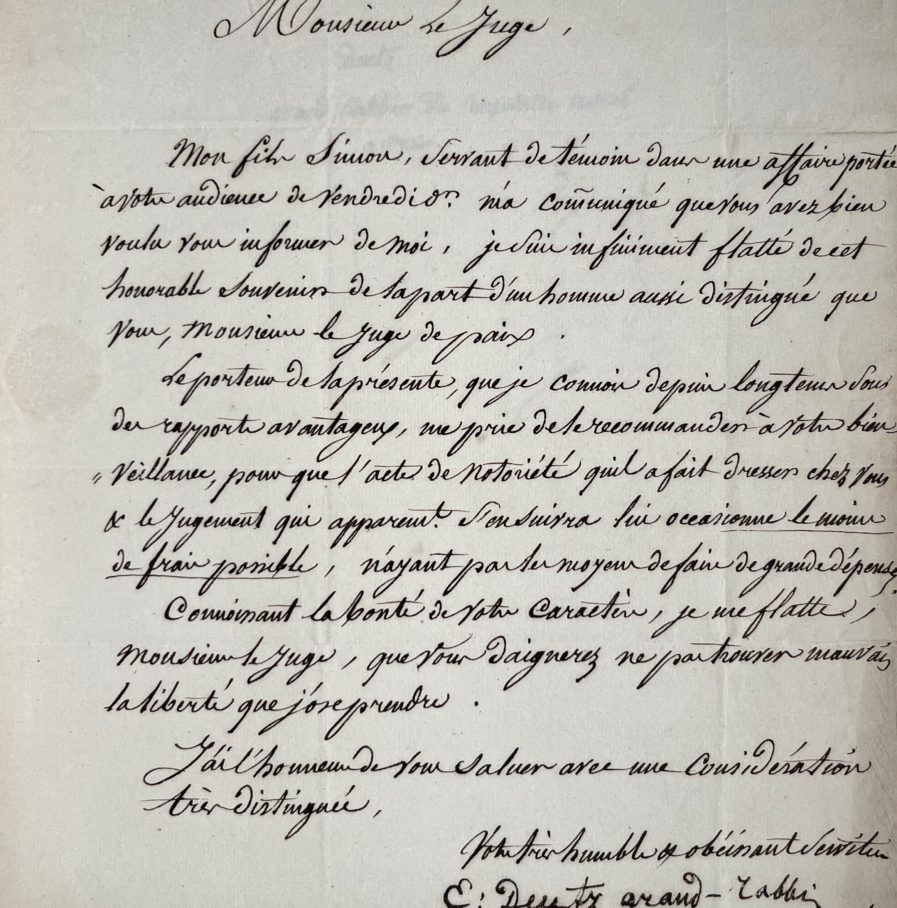 Monsieur Le Juge,
Mon fils Simon, servant de témoin dans une affaire portée
à votre audience de vendredi dr. m'a com̃uniqué que vous avez bien
voulu vous informer de moi, je suis infiniment flatté de cet
honorable souvenir de la part d'un homme aussi distingué que
vous, Monsieur le Juge de paix.
Le porteur de la présente, que je connois depuis longtems sous
des rapports avantageux, me prie de le recommander à votre bien
„ veillance, pour que l'acte de Notoriété qu'il a fait dresser chez vous
& le Jugement qui apparemt. s'en suivra lui occasionne le moins
de frais possible, n'ayant pas les moyens de faire de grande dépense.
Connoissant la bonté de votre Caractère, je me flatte,
Monsieur le Juge, que vous daignerez ne pas trouver mauvais
la liberté que j'ose prendre.
J'ai l'honneur de vous saluer avec une Considération
très distinguée,
Votre très humble & obéissant Serviteur
E: Deutz grand-rabbin